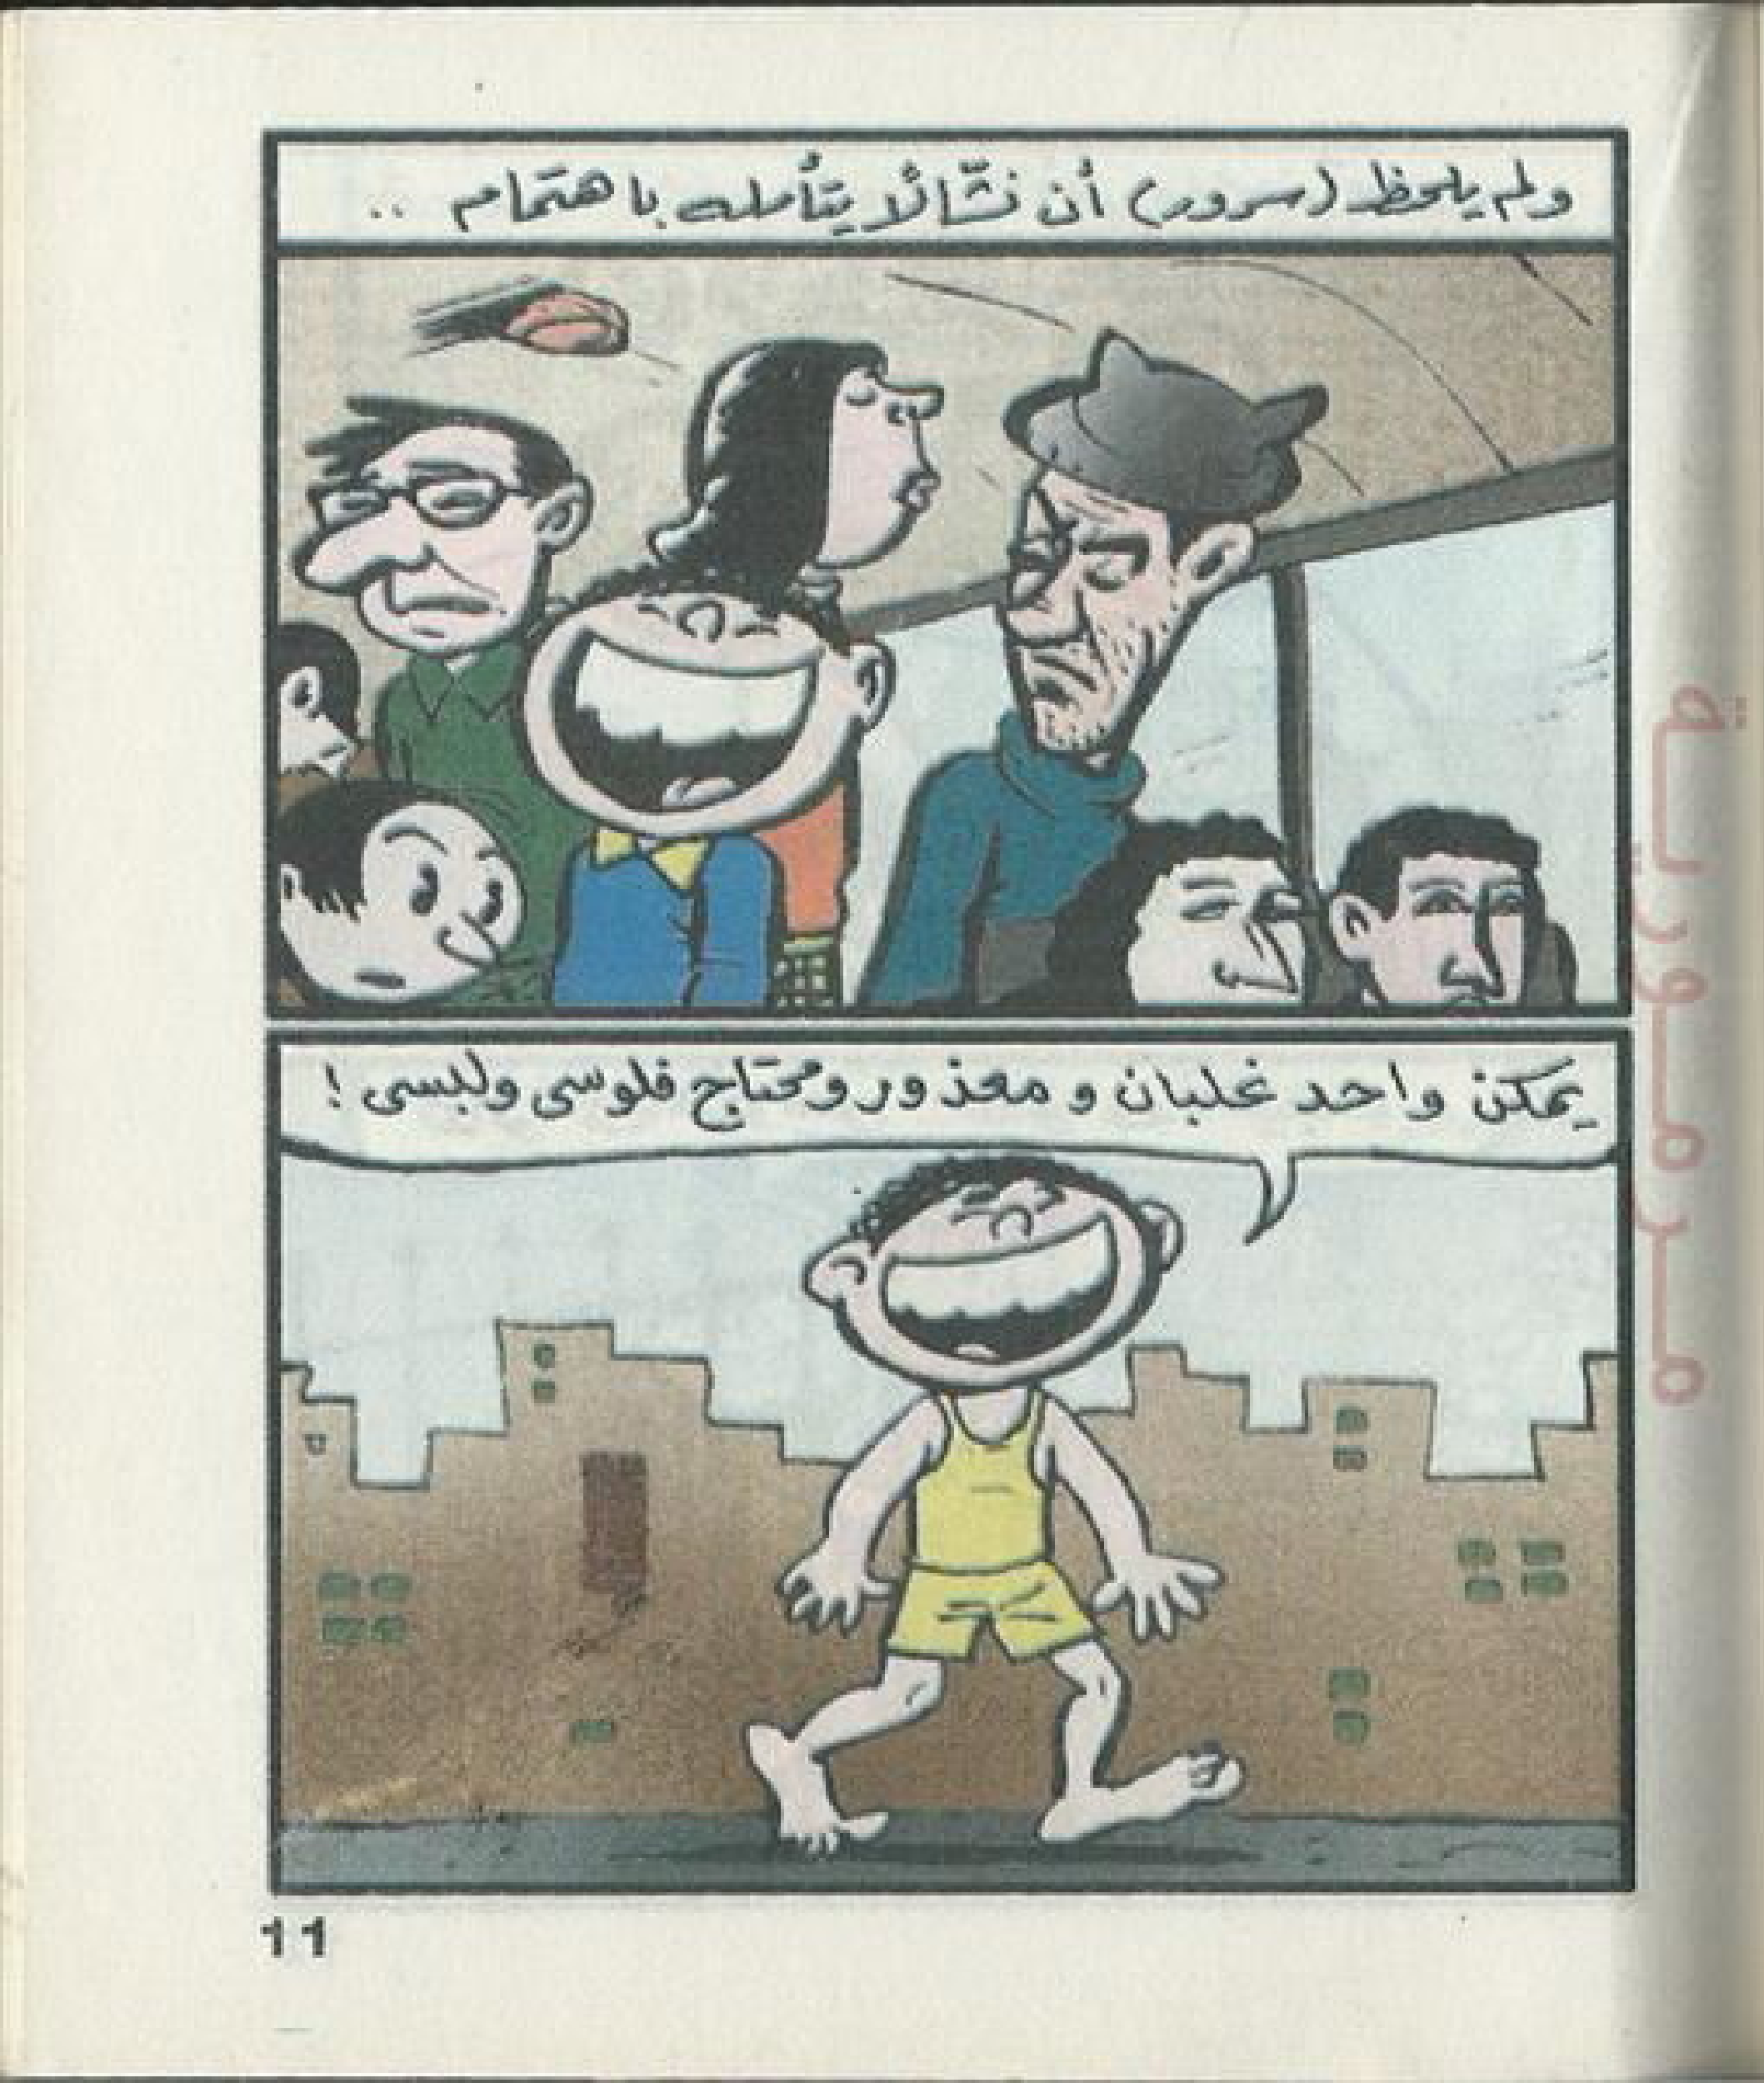 ولم يلحظ (سرور) أن نشّالًا يتأمله باهتمام ..
يمكن واحد غلبان و معذور ومحتاج فلوسى ولبسى !
11
مرمورية